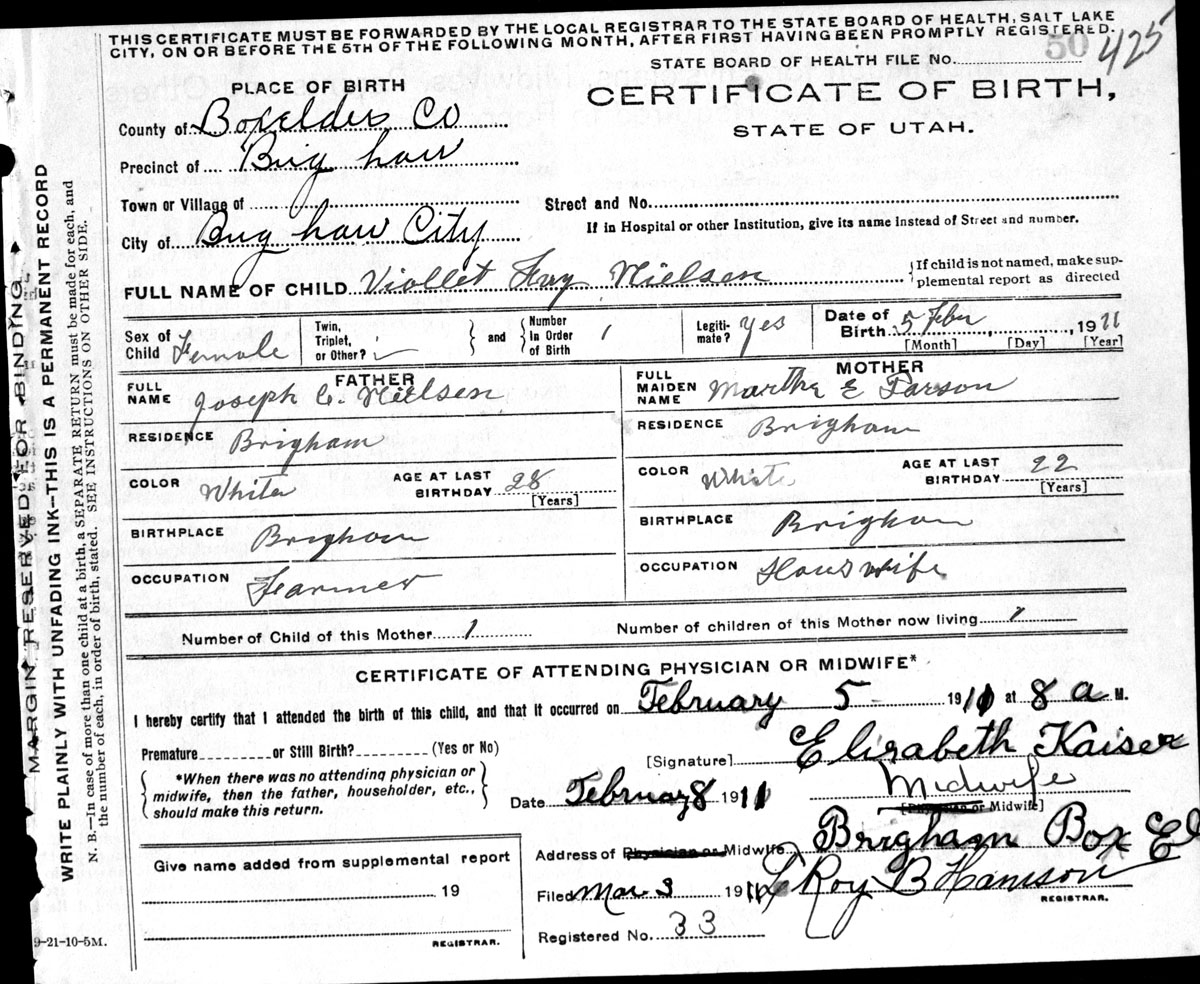 THIS CERTIFICATE MUST BE FORWARDED BY THE LOCAL REGISTRAR TO THE STATE BOARD OF HEALTH, SALT LAKE
CITY, ON OR BEFORE THE 5TH OF THE FOLLOWING MONTH, AFTER FIRST HAVING BEEN PROMPTLY REGISTERED.
50 425
STATE BOARD OF HEALTH FILE No.
PLACE OF BIRTH
CERTIFICATE OF BIRTH,
STATE OF UTAH.
County of Boxelder Co
Precinct of
Town or Village of
Street and No.
If in Hospital or other Institution, give its name instead of Street and number.
City of City
FULL NAME OF CHILD Viollet Fay Nielson
{If child is not named, make sup-
plemental report as directed
Sex of Child Female
Twin, Triplet, or Other?
} and {
Number in Order of Birth 1
Legiti-mate? Yes
Date of Birth 5 Feb , 1911
[Month] [Day] [Year]
FATHER
FULL NAME Joseph C. Nielsen
RESIDENCE Brigham
COLOR White
AGE AT LAST BIRTHDAY 28
[Years]
BIRTHPLACE Brigham
OCCUPATION Farmer
MOTHER
FULL MAIDEN NAME Martha E
RESIDENCE Brigham
COLOR White
AGE AT LAST BIRTHDAY 22
[Years]
BIRTHPLACE Brigham
OCCUPATION Houswife
Number of Child of this Mother 1
Number of children of this Mother now living 1
CERTIFICATE OF ATTENDING PHYSICIAN OR MIDWIFE*
I hereby certify that I attended the birth of this child, and that it occurred on February 5 1911 at 8 a M.
Premature or Still Birth? (Yes or No)
[Signature] Elisabeth Kaiser
{ *When there was no attending physician or
midwife, then the father, householder, etc.,
should make this return. }
Date February 8 1911
Midwife
[Physician or Midwife]
Address of Physician or Midwife Brigham Box El
Give name added from supplemental report
19
REGISTRAR.
Filed Mar 3 1911 Roy B
REGISTRAR.
Registered No. 33
9-21-10-5M.
MARGIN RESERVED FOR BINDING
WRITE PLAINLY WITH UNFADING INK—THIS IS A PERMANENT RECORD
N. B.—In case of more than one child at a birth, a SEPARATE RETURN must be made for each, and
the number of each, in order of birth, stated. SEE INSTRUCTIONS ON OTHER SIDE.